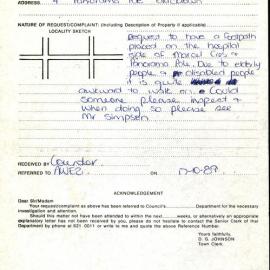 ADDRESS 4 Panorama Ave
NATURE OF REQUEST/COMPLAINT: (Including Description of Property if applicable)
LOCALITY SKETCH
Request to have a Footpath
placed on the hospital
side of Marcel Cres &
Panorama Ave. Due to elderly
people & or disabled people
it is quite
awkward to walk on. Could
someone please inspect &
when doing so please see
Mr Simpson.
RECEIVED BY
REFERRED TO
ACKNOWLEDGEMENT
Dear Sir/Madam
Your request/complaint as above has been referred to Council's Department for the necessary
investigation and attention.
Should this matter not have been attended to within the next weeks, or alternatively an appropriate
explanation letter has not been received by you, please do not hesitate to contact the Senior Clerk of that
Department by phone at 621 0011 or write to me and quote the above Reference Number.
Yours faithfully,
D. G. JOHNSON
Town Clerk.